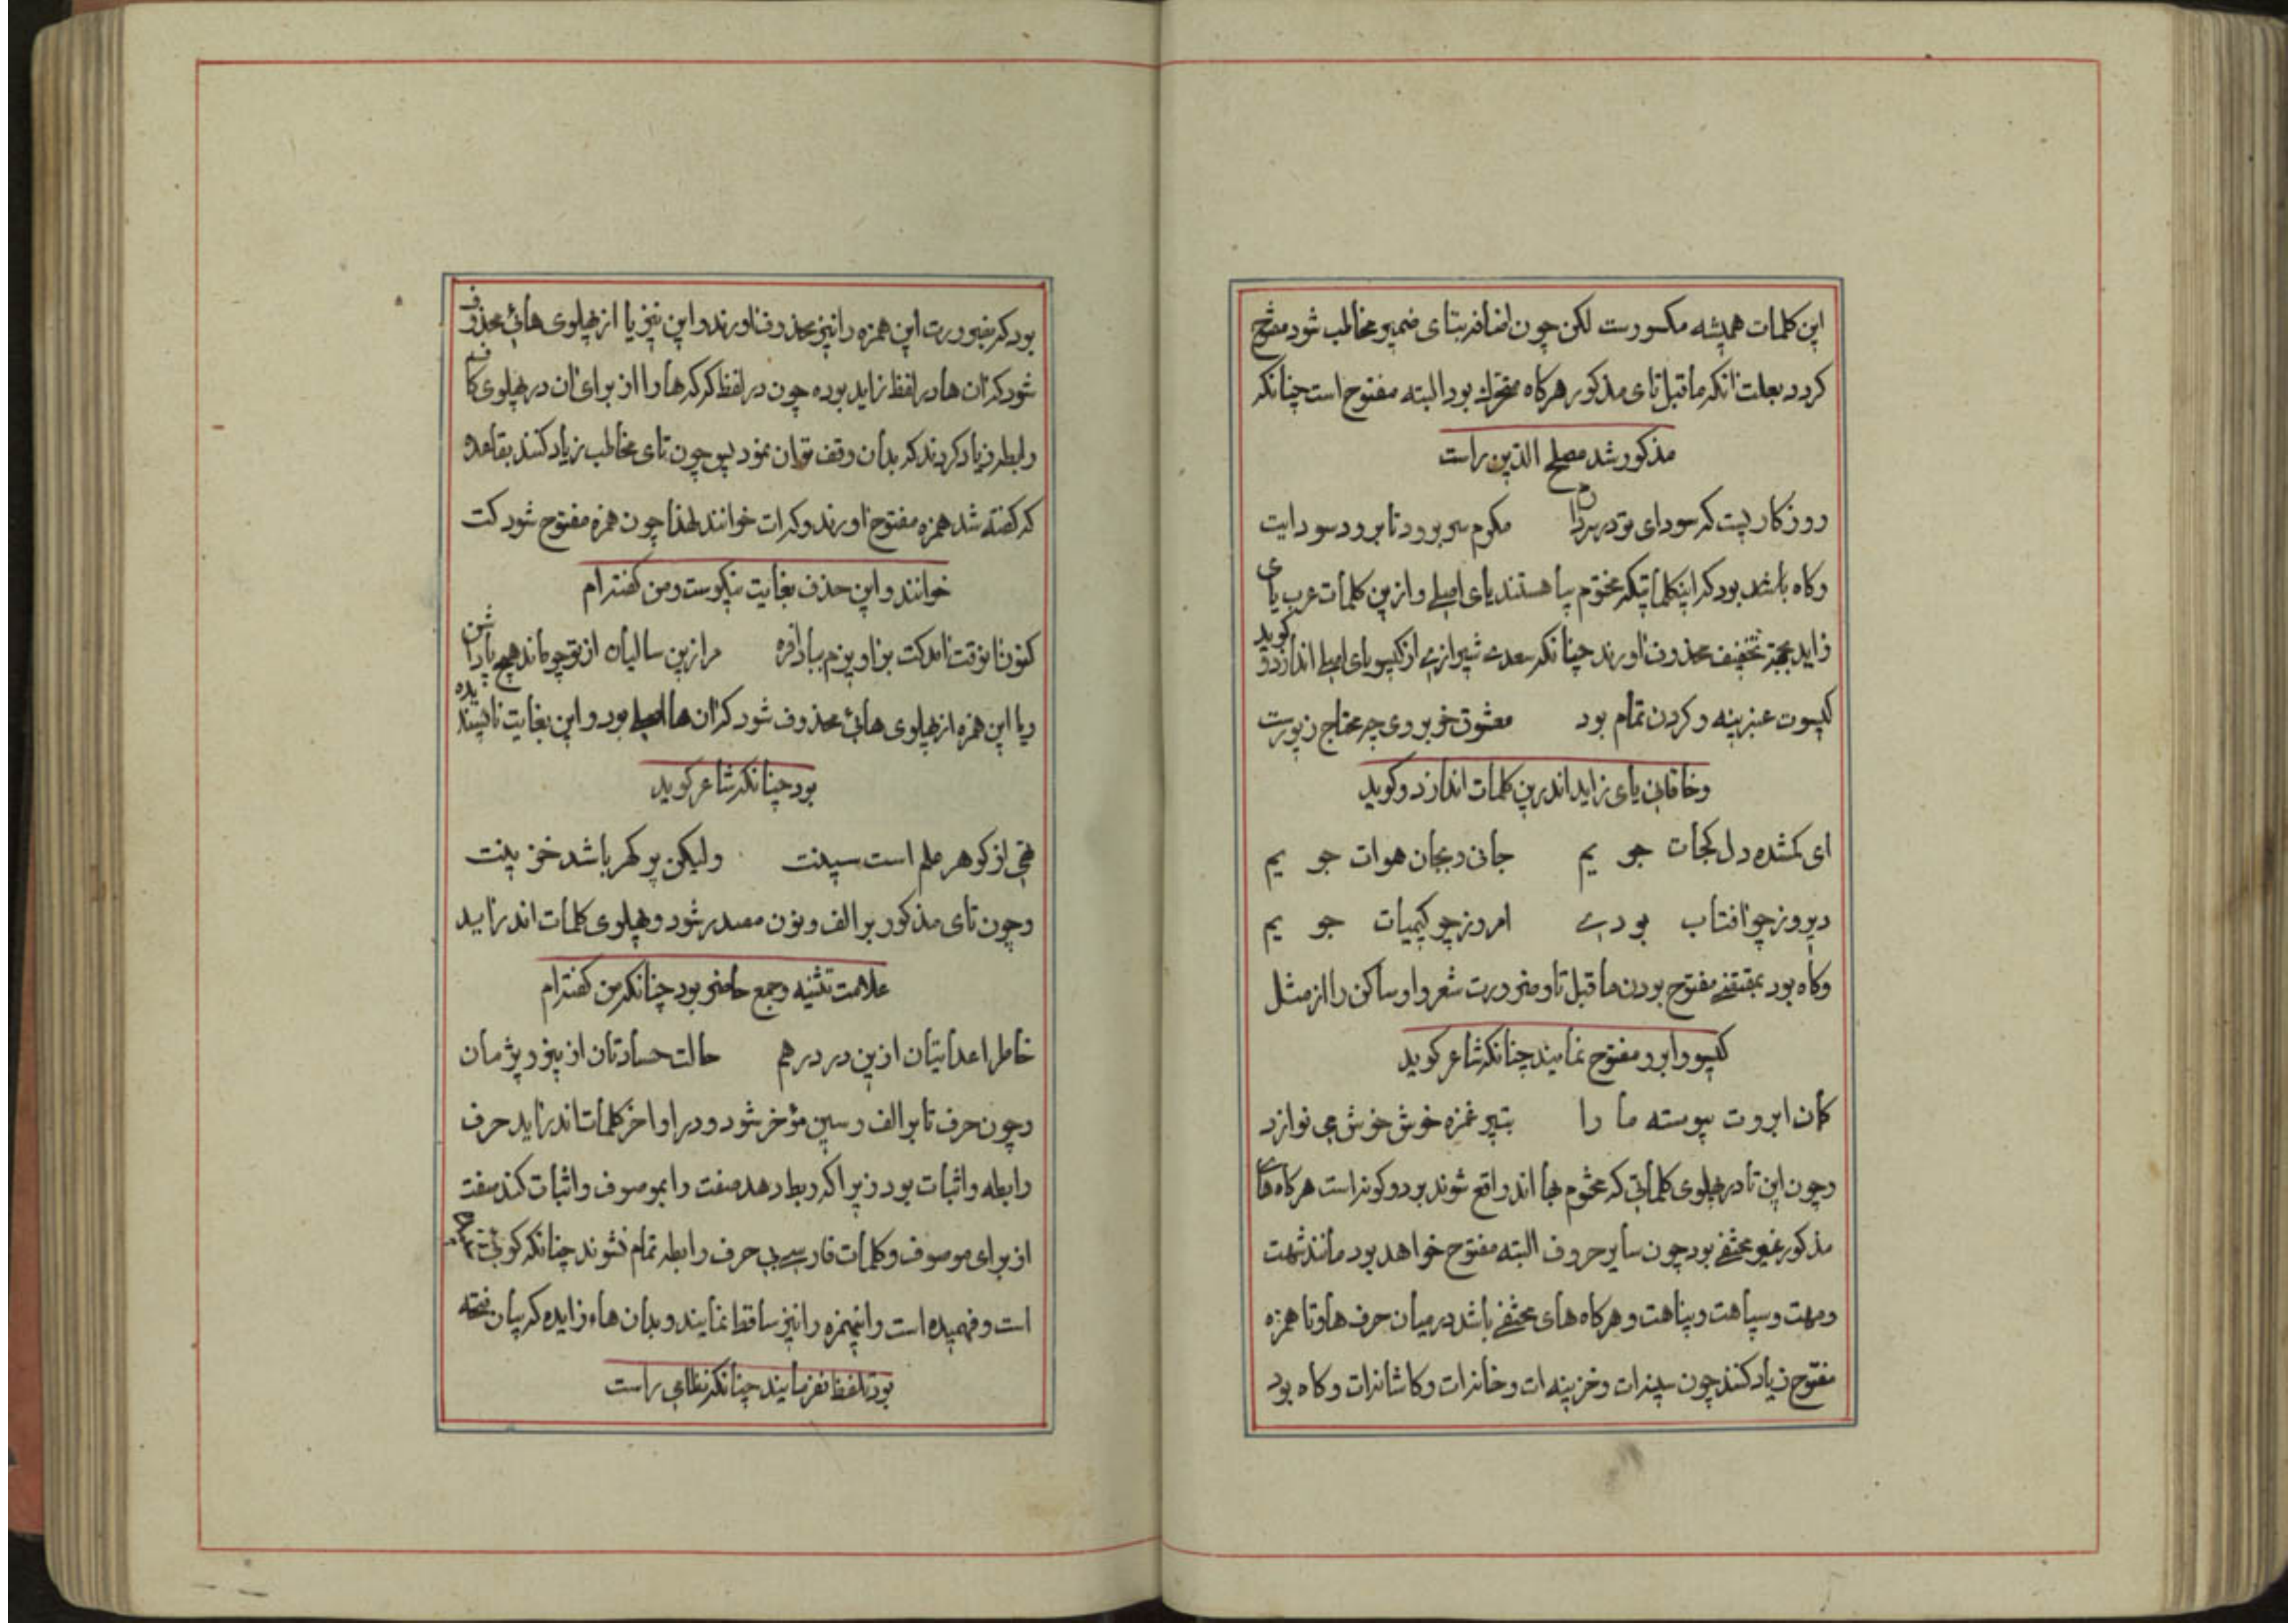 این کلمات همیشه مکسورست لکن چون اضافه بتای ضمیر مخاطب شود مفتوح
کردد بعلت انکه ماقبل تای مذکور هرکاه متحرک بود البته مفتوح است چنانکه
مذکور شد مصلح الدین راست
روزکاریست که سودای تو در سر دارم مکرم سر برود تا برود سودایت
وکاه باشد بود که اینکلماتیکه مختوم بیا هستند یای اصلی و ازین کلمات عرب یای
زاید بجهة تخفیف محذوف اورند چنانکه سعدی شیرازی از کیسو یای اصلی اندازد و کوید
کیسوت عنبرینه و کردن تمام بود معشوق خوبروی چه محتاج زیورست
وخاقانی یای زاید اندرین کلمات اندازد و کوید
ای کمشده دل کجات جو یم جانی و بجان هوات جو یم
دیروز چو افتاب بودی امروز چو کیمیات جو یم
وکاه بود بمقتضی مفتوح بودن ماقبل تا و ضرورت شعر واو ساکن را از مثل
کیسو و ابرو مفتوح نمایند چنانکه شاعر کوید
کمان ابروت پیوسته ما را بتیر غمزه خوش خوش می نوازد
وچون این تا در پهلوی کلماتی که مختوم بها اند واقع شوند بر دو کونه است هرکاه های
مذکور غیر مختفی بود چون سایر حروف البته مفتوح خواهد بود مانند شهت
ومهت و سپاهت و پناهت و هرکاه های مختفی باشد در میان حرف ها و تا همزه
مفتوح زیاد کنند چون سینه ات و خزینه ات و خانه ات و کاشانه ات وکاه بود
بود که بضرورت این همزه را نیز محذوف اورند و این نیز یا از پهلوی هائی محذوف
شود که ان ها در لفظ زاید بوده چون در لفظ که که ها را از برای ان در پهلوی کاف
رابطه زیاد کردند که بدان وقف توان نمود پس چون تای مخاطب زیاد کنند بقاعده
که کفته شد همزه مفتوح اورند و که ات خوانند لهذا چون همزه مفتوح شود کت
خوانند و این حذف بغایت نیکوست و من کفته ام
کنون نوقت امد کت بناویزم ببادافره مرا زین سالیان از تو چو ماند هیچ پاداشن
ویا این همزه از پهلوی هائی محذوف شود که ان ها اصلی بود و این بغایت ناپسندیده
بود چنانکه شاعر کوید
تهی از کوهر علم است سینت ولیکن پر کهر باشد خزینت
وچون تای مذکور بر الف و نون مصدر شود و پهلوی کلمات اندر اید
علامت تثنیه و جمع حاضر بود چنانکه من کفته ام
خاطر اعدایتان ازین در درهم حالت حسادتان از نیرو پژمان
وچون حرف تا بر الف و سین مؤخر شود و در اواخر کلمات اندر اید حرف
رابطه و اثبات بود زیرا که ربط دهد صفت را بموصوف و اثبات کند صفت
از برای موصوف و کلمات فارسی بی حرف رابطه تمام نشوند چنانکه کوئی
است و فهمیده است و اینهمزه را نیز ساقط نمایند و بدان هاء زایده که بیان فتحه
بود تلفظ نفرمایند چنانکه نظامی راست